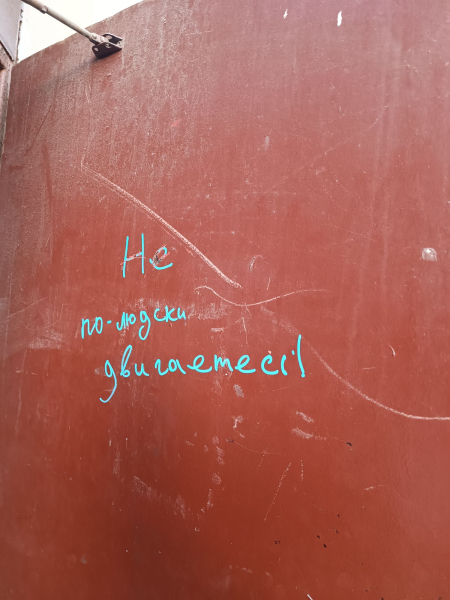 Не
по-людски
двигаетесь!